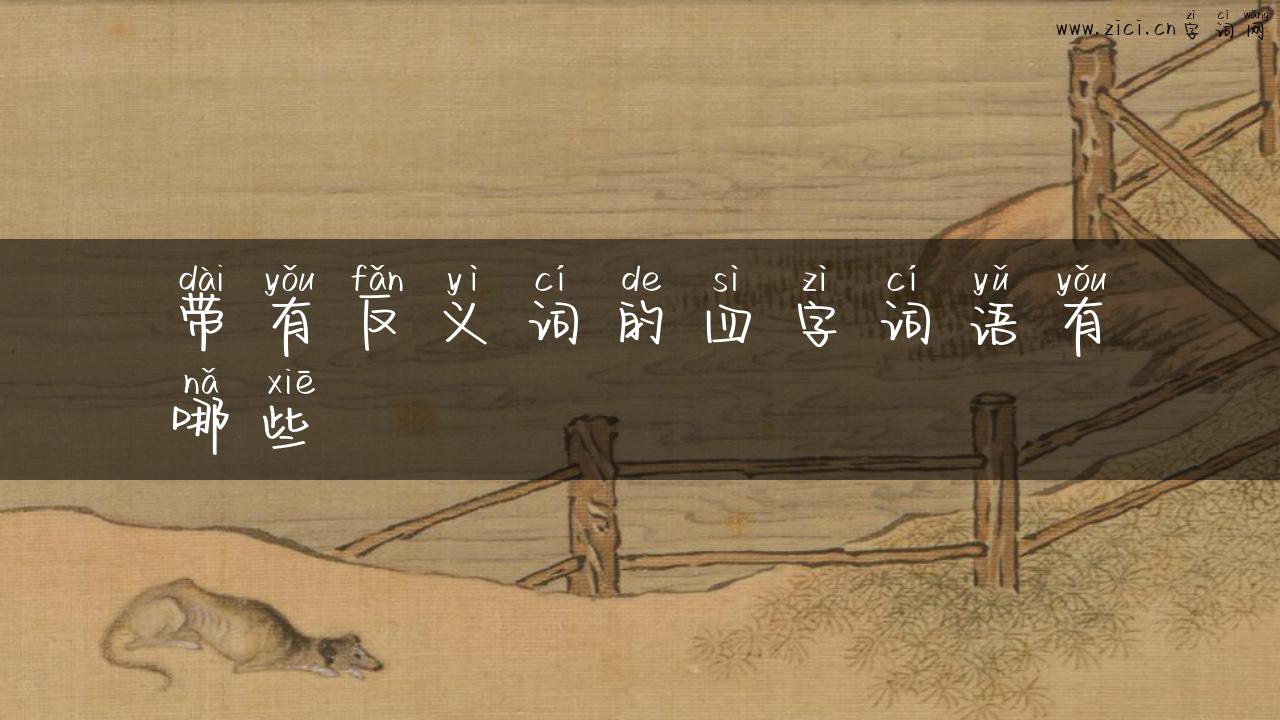 zì cí wǎng
www.zici.cn字词网
dài yǒu fǎn yì cí de sì zì cí yǔ yǒu
带有反义词的四字词语有
nǎ xiē
哪些